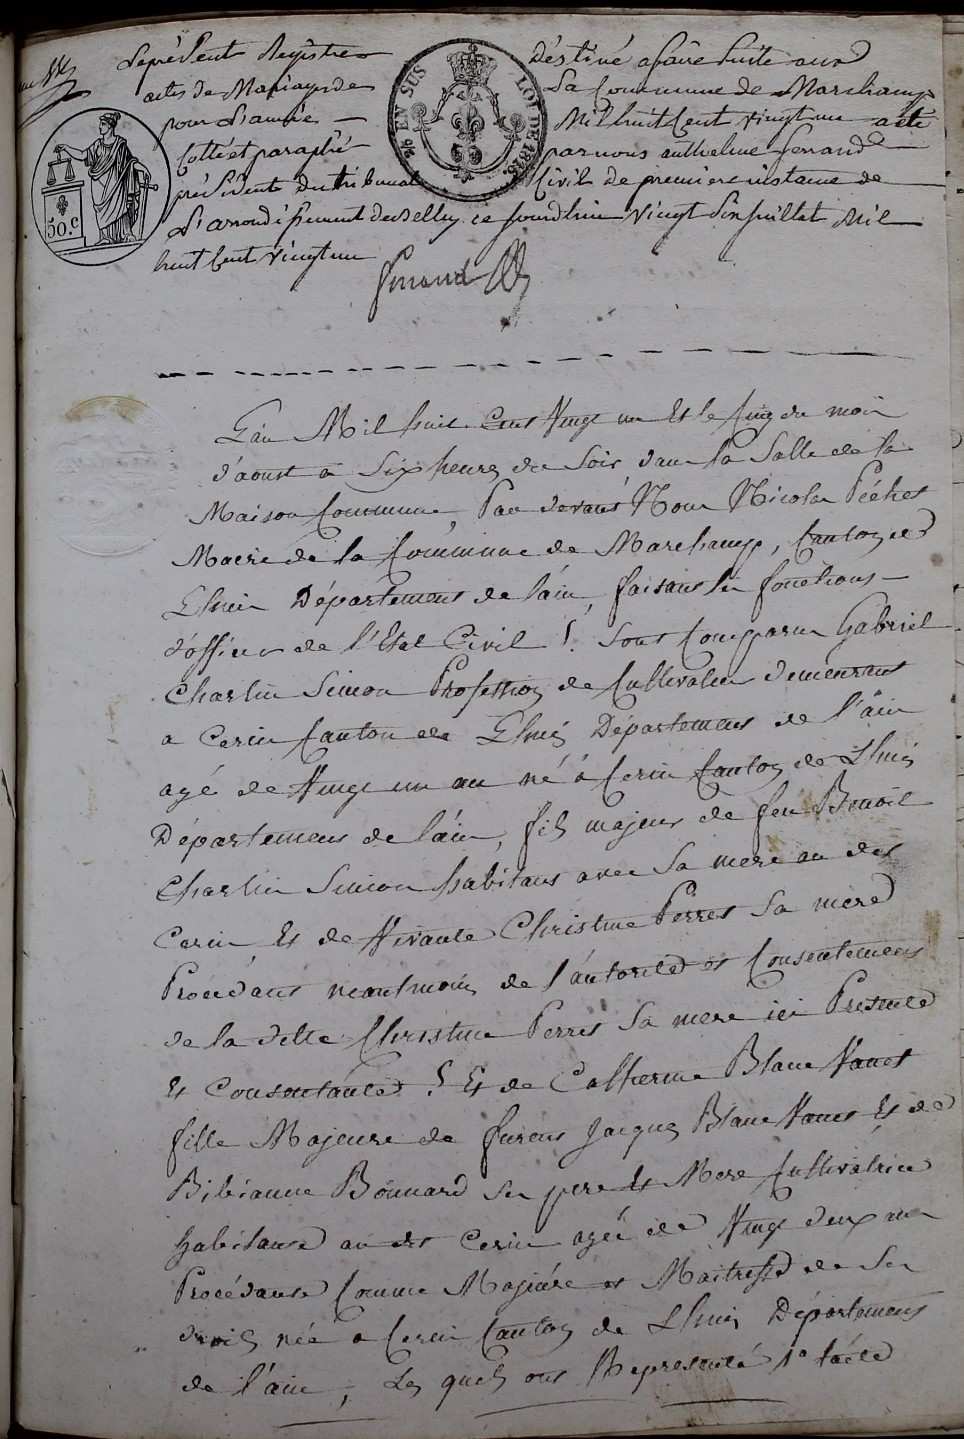 Le présent Registre destiné a faire suite aux
actes de Mariages de la Commune de Marchamp
pour l'année Mil huit cent vingt un a été
cotté et paraphé par nous anthelme ferrand
président du tribunal Civil de premiere instance de
L'arrondissement de Belley ce jourdhui vingt six juillet Mil
huit cent vingt un
ferrand
26 EN SUS LOI DE 1818.
50.c
L'an Mil huit Cent Vingt un Et le Cinq du mois
d'aoust a Six heures du Soir dans la Salle de la
Maison Commune, Par devant Nous Nicolas
Maire de la Commune de Marchamp, Canton de
Lhuis Département de l'ain, faisant les fonctions
d'officier de l'Etat Civil ! Sont Comparu Gabriel
Charlin Simon Profession de Cultivateur demeurant
a Cerin Canton de Lhuis Département de l'ain
agé de Vingt un an né a Cerin Canton de Lhuis
Département de l'ain, fils majeur de feu Benoit
Charlin Simon habitant avec Sa mere au dit
Cerin Et de Vivante Christine Perret Sa mere
Procédant neantmoins de l'autorité et Consentement
de la ditte Christine Perret Sa mere ici Presente
Et Consentante ! Et de Catherine Blanc
fille Majeure de furent Jacques Blanc Et de
Bibianne Bonnard Ses pere et Mere Cultivatrice
habitante au dit Cerin agée de Vingt deux an
Procédante Comme Majeure et Maitresse de Ses
droits née a Cerin Canton de Lhuis Département
de l'ain, Les quels ont Representé 1° l'acte